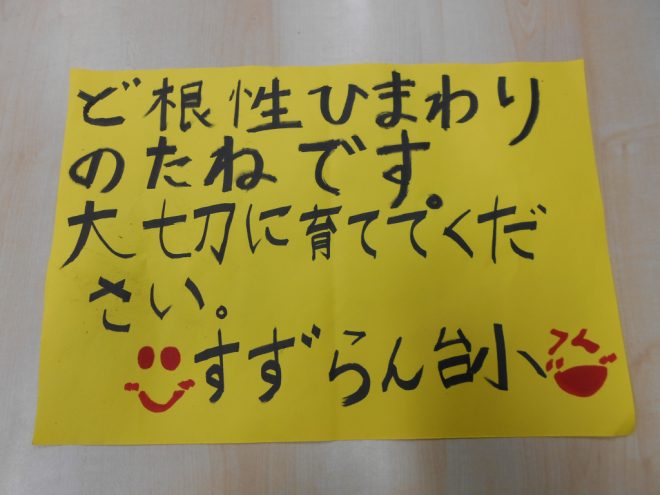 ど根性ひまわり
のたねです。
大切に育ててくだ
さい。
すずらん台小